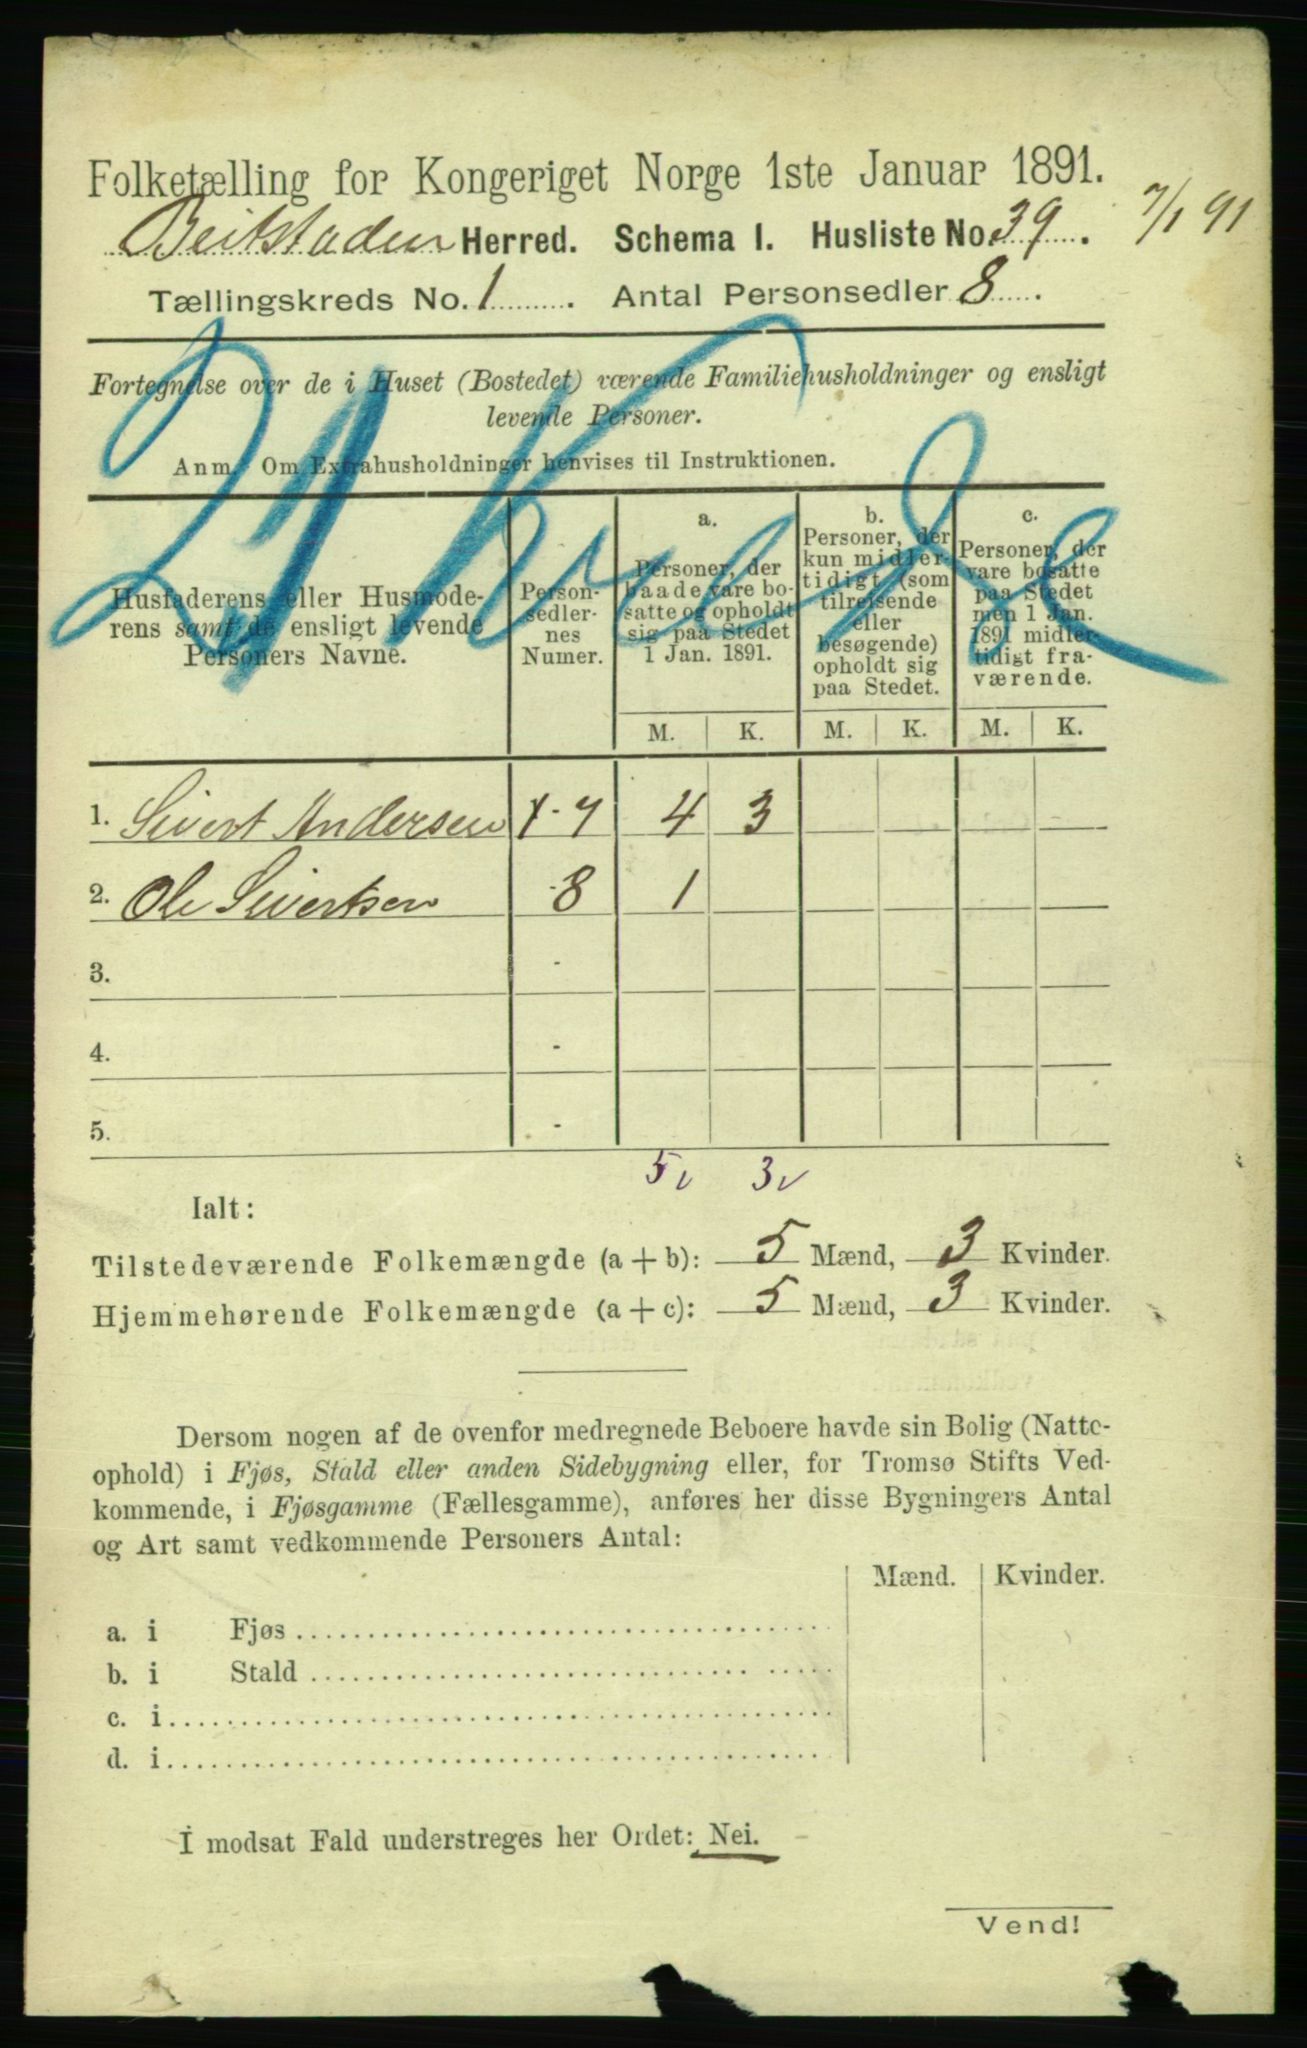 Folketælling for Kongeriget Norge 1ste Januar 1891.
7/1 91
Beitstaden Herred. Schema I. Husliste No. 39.
Tællingskreds No. 1. Antal Personsedler 8.
Fortegnelse over de i Huset (Bostedet) værende Familiehusholdninger og ensligt
levende Personer.
Anm. Om Extrahusholdninger henvises til Instruktionen.
Husfaderens eller Husmode-
rens samt de ensligt levende
Personers Navne.
Person-
sedler-
nes
Numer.
a.
Personer, der
baade vare bo-
satte og opholdt
sig paa Stedet
1 Jan. 1891.
b.
Personer, der
kun midler-
tidigt (som
tilreisende
eller
besøgende)
opholdt sig
paa Stedet.
c.
Personer, der
vare bosatte
paa Stedet
men 1 Jan.
1891 midler-
tidigt fra-
værende.
M. K. M. K. M. K.
1. Sivert Andersen 1-7 4 3
2. Ole Sivertsen -8 1
3. -
4. -
5. -
5 v 3 v
Ialt:
Tilstedeværende Folkemængde (a + b): 5 Mænd, 3 Kvinder.
Hjemmehørende Folkemængde (a + c): 5 Mænd, 3 Kvinder.
Dersom nogen af de ovenfor medregnede Beboere havde sin Bolig (Natte-
ophold) i Fjøs, Stald eller anden Sidebygning eller, for Tromsø Stifts Ved-
kommende, i Fjøsgamme (Fællesgamme), anføres her disse Bygningers Antal
og Art samt vedkommende Personers Antal:
Mænd. Kvinder.
a. i Fjøs
b. i Stald
c. i
d. i
I modsat Fald understreges her Ordet: Nei.
Vend!